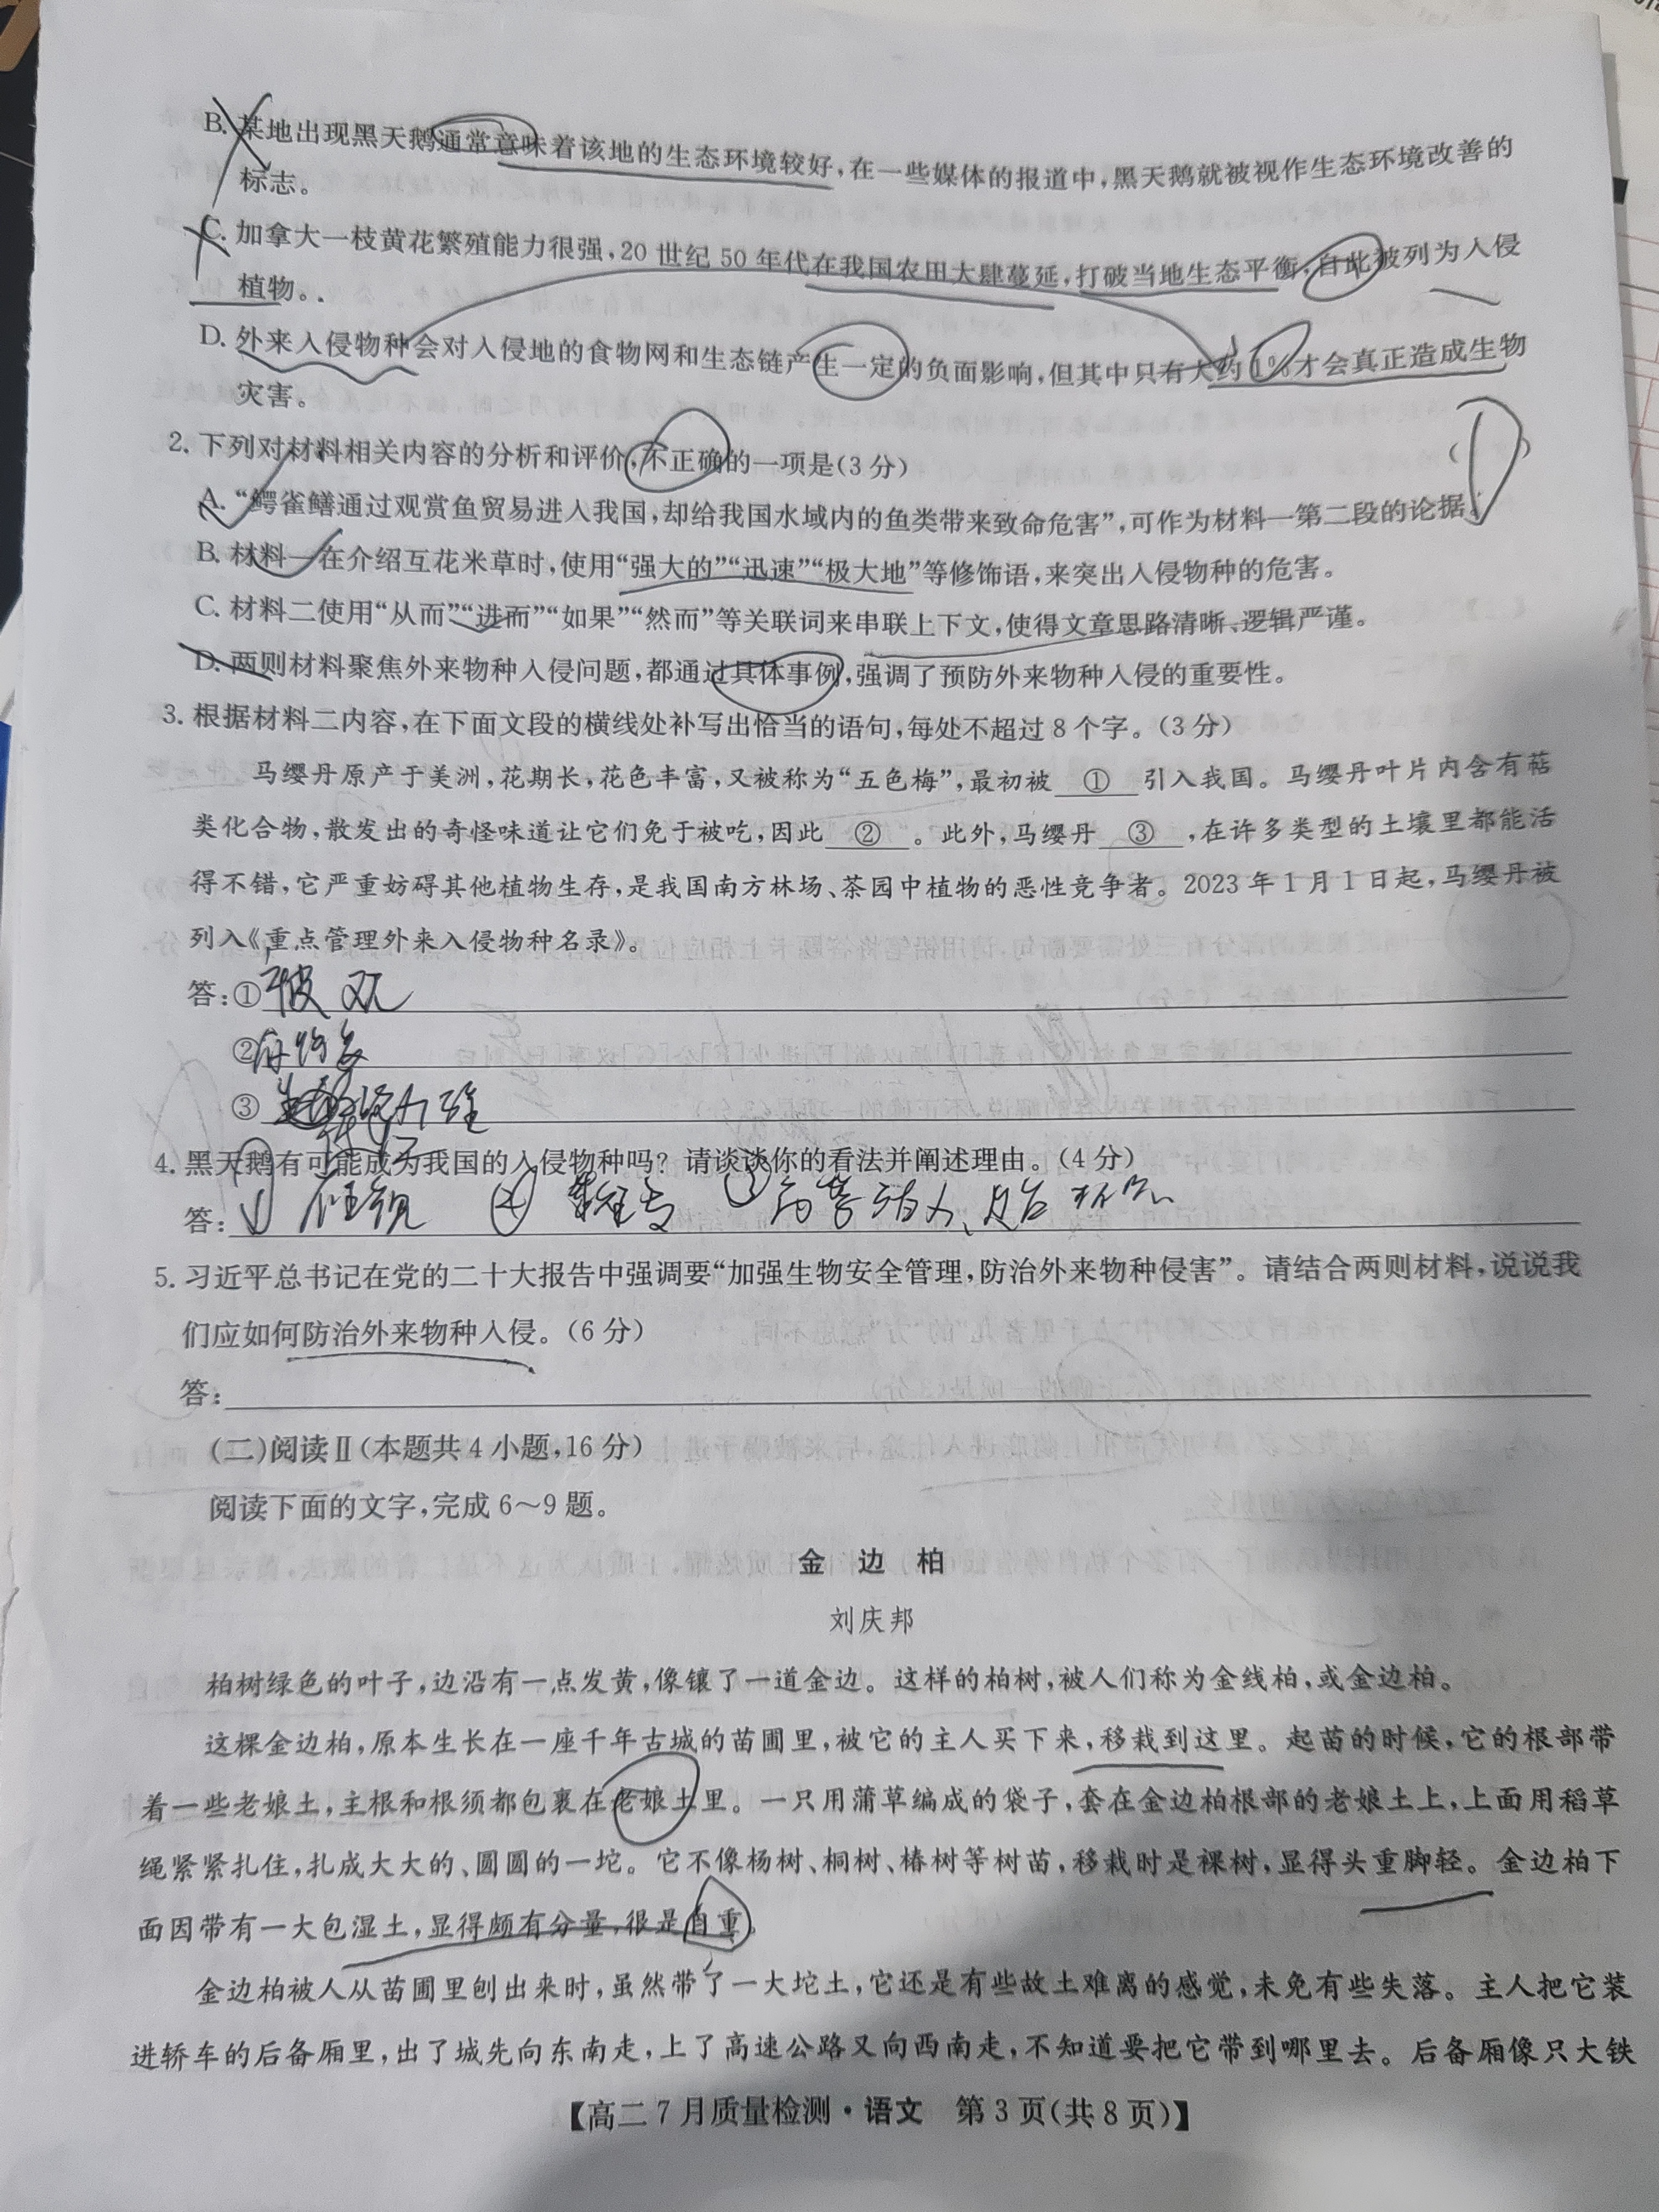 B. 某地出现黑天鹅通常意味着该地的生态环境较好,在一些媒体的报道中,黑天鹅就被视作生态环境改善的
标志。
C. 加拿大一枝黄花繁殖能力很强,20 世纪 50 年代在我国农田大肆蔓延,打破当地生态平衡,自此被列为入侵
植物。
D. 外来入侵物种会对入侵地的食物网和生态链产生一定的负面影响,但其中只有大约 1%才会真正造成生物
灾害。
2. 下列对材料相关内容的分析和评价,不正确的一项是(3 分)
A. “鳄雀鳝通过观赏鱼贸易进入我国,却给我国水域内的鱼类带来致命危害”,可作为材料一第二段的论据。
B. 材料一在介绍互花米草时,使用“强大的”“迅速”“极大地”等修饰语,来突出入侵物种的危害。
C. 材料二使用“从而”“进而”“如果”“然而”等关联词来串联上下文,使得文章思路清晰、逻辑严谨。
D. 两则材料聚焦外来物种入侵问题,都通过具体事例,强调了预防外来物种入侵的重要性。
3. 根据材料二内容,在下面文段的横线处补写出恰当的语句,每处不超过 8 个字。(3 分)
马缨丹原产于美洲,花期长,花色丰富,又被称为“五色梅”,最初被 ① 引入我国。马缨丹叶片内含有萜
类化合物,散发出的奇怪味道让它们免于被吃,因此 ② 。此外,马缨丹 ③ ,在许多类型的土壤里都能活
得不错,它严重妨碍其他植物生存,是我国南方林场、茶园中植物的恶性竞争者。2023 年 1 月 1 日起,马缨丹被
列入《重点管理外来入侵物种名录》。
答:①
②
③
4. 黑天鹅有可能成为我国的入侵物种吗?请谈谈你的看法并阐述理由。(4 分)
答:
5. 习近平总书记在党的二十大报告中强调要“加强生物安全管理,防治外来物种侵害”。请结合两则材料,说说我
们应如何防治外来物种入侵。(6 分)
答:
(二)阅读Ⅱ(本题共 4 小题,16 分)
阅读下面的文字,完成 6～9 题。
金 边 柏
刘庆邦
柏树绿色的叶子,边沿有一点发黄,像镶了一道金边。这样的柏树,被人们称为金线柏,或金边柏。
这棵金边柏,原本生长在一座千年古城的苗圃里,被它的主人买下来,移栽到这里。起苗的时候,它的根部带
着一些老娘土,主根和根须都包裹在老娘土里。一只用蒲草编成的袋子,套在金边柏根部的老娘土上,上面用稻草
绳紧紧扎住,扎成大大的、圆圆的一坨。它不像杨树、桐树、椿树等树苗,移栽时是裸树,显得头重脚轻。金边柏下
面因带有一大包湿土,显得颇有分量,很是自重。
金边柏被人从苗圃里刨出来时,虽然带了一大坨土,它还是有些故土难离的感觉,未免有些失落。主人把它装
进轿车的后备厢里,出了城先向东南走,上了高速公路又向西南走,不知道要把它带到哪里去。后备厢像只大铁
【高二 7 月质量检测·语文 第 3 页(共 8 页)】